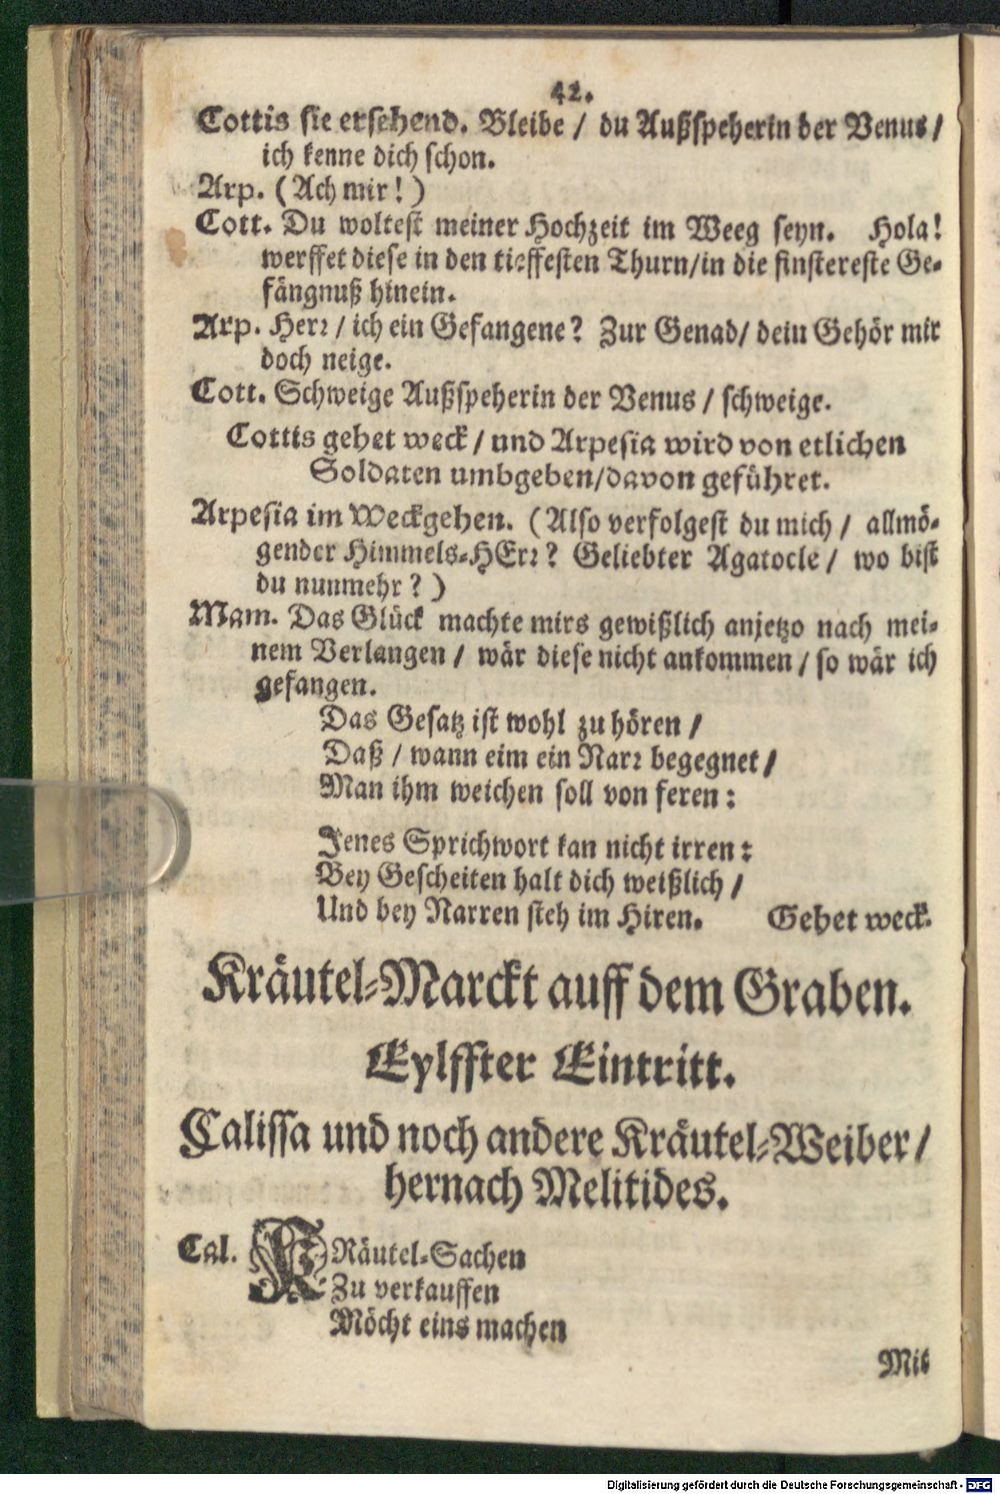 42.
Cottis sie ersehend. Bleibe / du Außspeherin der Venus /
ich kenne dich schon.
Arp. (Ach mir! )
Cott. Du woltest meiner Hochzeit im Weeg seyn. Hola!
werffet diese in den tieffesten Thurn/in die finstereste Ge-
fängnuß hinein.
Arp. Herr / ich ein Gefangene? Zur Genad/ dein Gehör mir
doch neige.
Cott. Schweige Außspeherin der Venus / schweige.
Cottis gehet weck / und Arpesia wird von etlichen
Soldaten umbgeben/davon geführet.
Arpesia im Weckgehen. (Also verfolgest du mich / allmö-
gender Himmels-HErr? Geliebter Agatocle / wo bist
du nunmehr? )
Mam. Das Glück machte mirs gewißlich anjetzo nach mei-
nem Verlangen / wär diese nicht ankommen / so wär ich
gefangen.
Das Gesatz ist wohl zu hören /
Daß / wann eim ein Narr begegnet /
Man ihm weichen soll von feren:
Jenes Sprichwort kan nicht irren:
Bey Gescheiten halt dich weißlich /
Und bey Narren steh im Hiren. Gehet weck.
Kräutel-Marckt auff dem Graben.
Eylffter Eintritt.
Calissa und noch andere Kräutel-Weiber /
hernach Melitides.
Cal. KRäutel-Sachen
Zu verkauffen
Möcht eins machen
Mit
Digitalisierung gefördert durch die Deutsche Forschungsgemeinschaft - DFG